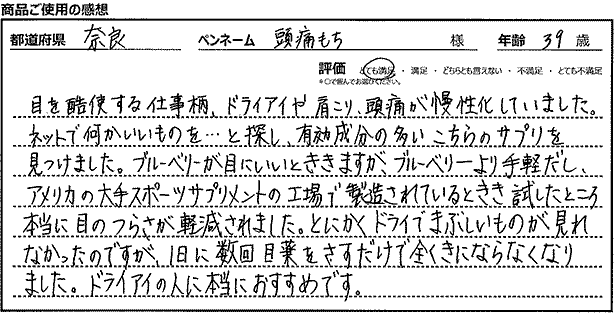 商品ご使用の感想
都道府県 奈良 ペンネーム 頭痛もち 様 年齢 39 歳
評価 とても満足・満足・どちらとも言えない・不満足・とても不満足
*○で囲んでお選びください。
目を酷使する仕事柄、ドライアイや肩こり、頭痛が慢性化していました。
ネットで何かいいものを…と探し、有効成分の多いこちらのサプリを
見つけました。ブルーベリーが目にいいとききますが、ブルーベリーより手軽だし、
アメリカの大手スポーツサプリメントの工場で製造されているときき試したところ
本当に目のつらさが軽減されました。とにかくドライでまぶしいものが見れ
なかったのですが、1日に数回目薬をさすだけで全くきにならなくなり
ました。ドライアイの人に本当におすすめです。